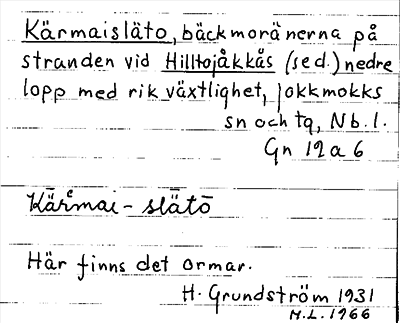 Kärmaisläto, bäckmoränerna på
stranden vid Hilltojåkkås (se d.) nedre
lopp med rik växtlighet, Jokkmokks
sn och tg, Nb. l.
Gn 19 a 6
Kārmai - slātō
Här finns det ormar.
H. Grundström 1931
M.L. 1966